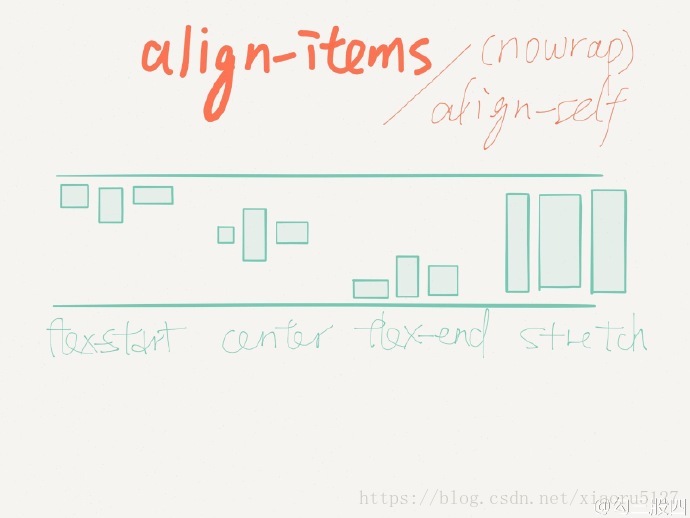 align-items / (nowrap)
align-self
flex-start center flex-end stretch
https://blog.csdn.net/xiaoru5127
@勾三股四